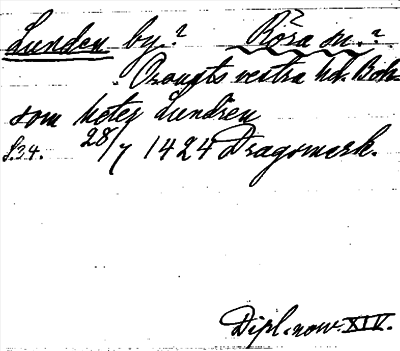 Lunden by? Röra sn.?
Orousts vestra hd. Boh.
som heter Lundren
s. 34. 28/7 1424 Dragsmark.
Dipl. norv. XIV.